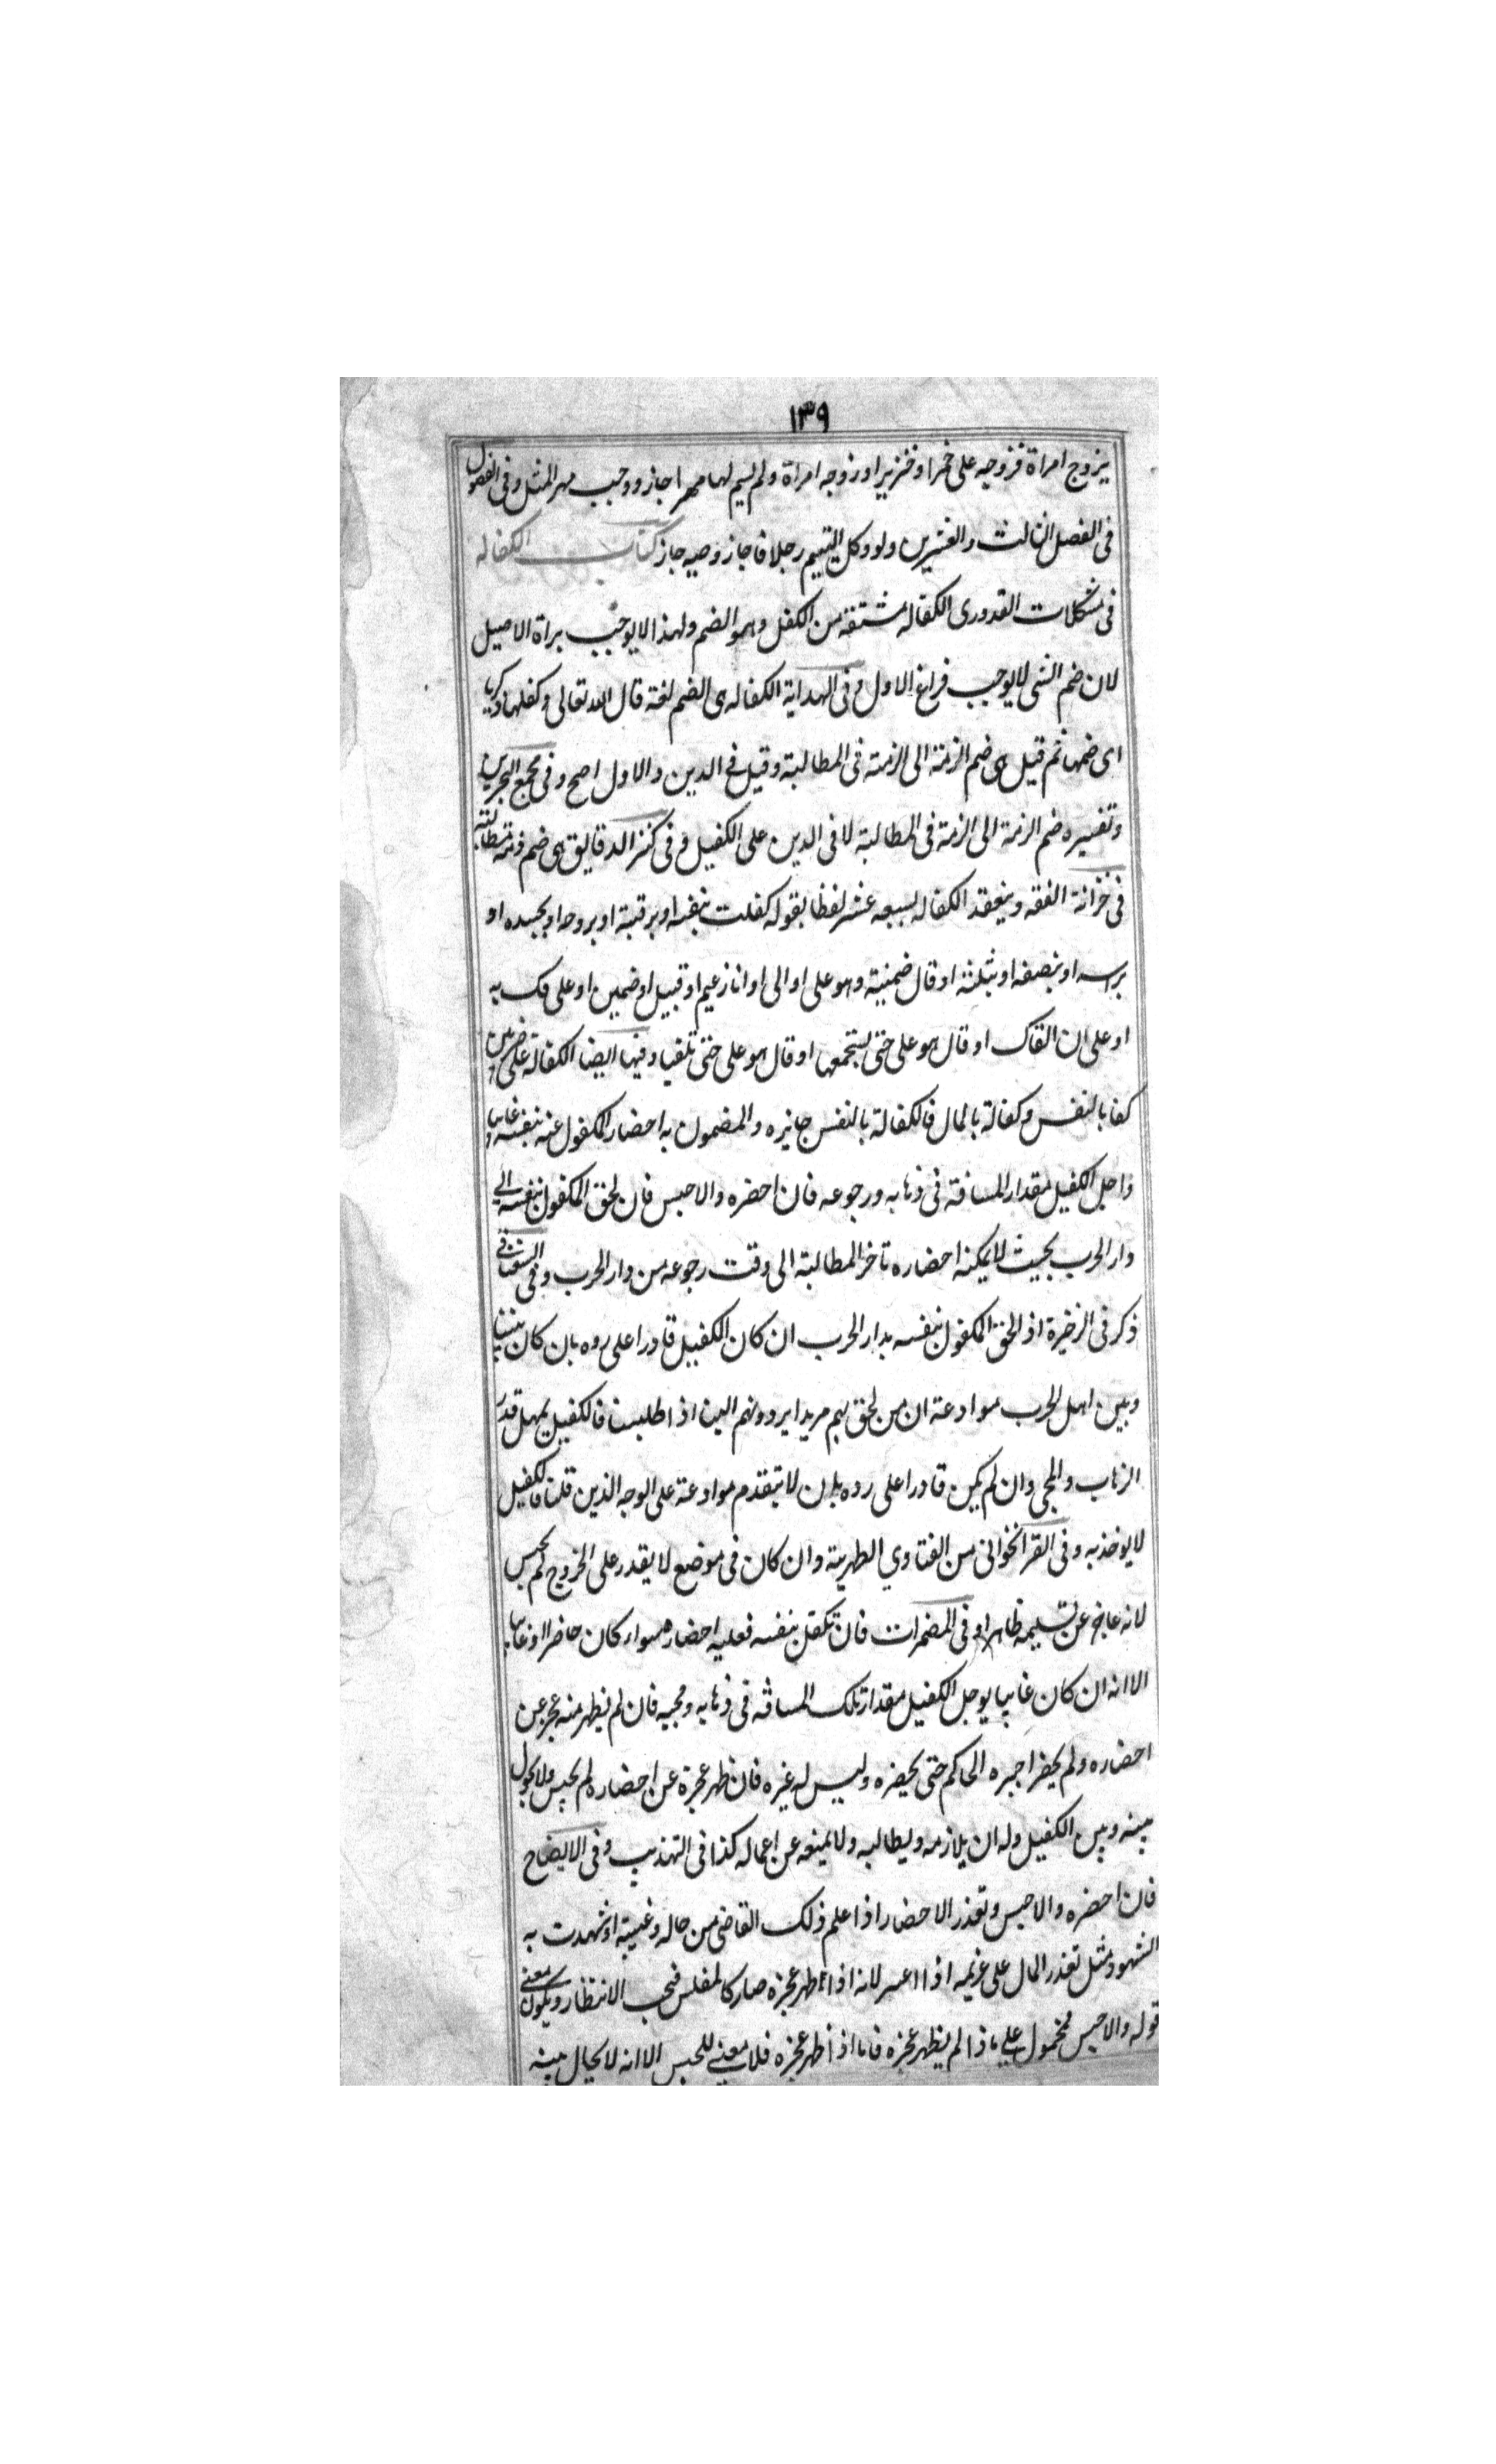 ١٣٩
يزوج امراة فزوجه على خمر او خنزير او زوجه امراة ولم يسم لها مهرا جاز ووجب مهر المثل وفى الفصول
فى الفصل الثالث والعشرين ولو وكل اليتيم رجلا فاجاز وصيه جاز كتاب الكفاله
فى مشكلات القدورى الكفاله مشتقة من الكفل وهو الضم ولهذا لا يوجب براة الاصيل
لان ضم الشى لا يوجب فراغ الاول وفى الهداية الكفاله هى الضم لغة قال الله تعالى وكفلها زكريا
اى ضمها ثم قيل هى ضم الذمة الى الذمة فى المطالبة وقيل فى الدين والاول اصح وفى مجمع البحرين
وتفسيره ضم الذمة الى الذمة فى المطالبة لا فى الدين على الكفيل وفى كنز الدقايق هى ضم ذمة
فى خزانة الفقه وينعقد الكفاله بسبعه عشر لفظا بقوله كفلت بنفسه او برقبته او بروحه او بجسده او
براسه او بنصفه او بثلثه او قال ضمنته وهو على او الى او انا زعيم او قبيل او ضمين او على فك به
او على ان القاك او قال هو على حتى يستجمعها او قال هو على حتى تلقيا وفيها ايضا الكفالة على ضربين
كفا بالنفس وكفالة بالمال فالكفالة بالنفس جايزه والمضمون به احضار المكفول عنه بنفسه
واجل الكفيل مقدار المسافة فى ذهابه ورجوعه فان احضره والا حبس فان لحق المكفول بنفسه الى
دار الحرب بحيث لا يمكنه احضاره تاخر المطالبة الى وقت رجوعه من دار الحرب وفى السغناقى
ذكر فى الذخيرة اذ الحق المكفول بنفسه بدار الحرب ان كان الكفيل قادرا على رده بان كان بيننا
وبين اهل الحرب موادعة ان من لحق بهم مريدا يردونهم الينا اذ اطلبنا فالكفيل يمهل قدر
الذهاب والمجى وان لم يكن قادرا على رده بان لا يتقدم موادعة على الوجه الذين قلنا فالكفيل
لا يوخذ به وفى القراخوانى من الفتاوي الظهرية وان كان فى موضع لا يقدر على الخروج لم يحبس
لانه عاجز عن تسليمه ظاهرا وفى المضمرات فان تكفل بنفسه فعليه احضاره سواء كان حاضرا او غايبا
الا انه ان كان غايبا يوجل الكفيل مقدار تلك المسافة فى ذهابه ومجيه فان لم يظهر منه عجز عن
احضاره ولم يحضر اجبره الحاكم حتى يحضره وليس له غيره فان ظهر عجزة عن احضاره لم يحبس ولا يحول
بينه وبين الكفيل وله ان يلازمه ويطالبه ولا يمنعه عن اعماله كذا فى التهذيب وفى الايضاح
فان احضره والا حبس وتعذر الاحضار اذا علم ذلك القاضى من حاله وغيبته او شهدت به
الشهود مثل تعذر المال على غريمه اذا اعسر لانه اذا ظهر عجزه صار كالمفلس فيجب الانتظار ويكون معنى
قوله والا حبس محمول على ما ذا لم يظهر عجزه فاما اذ اظهر عجزه فلا معنى للحبس الا انه لا يحال بينه